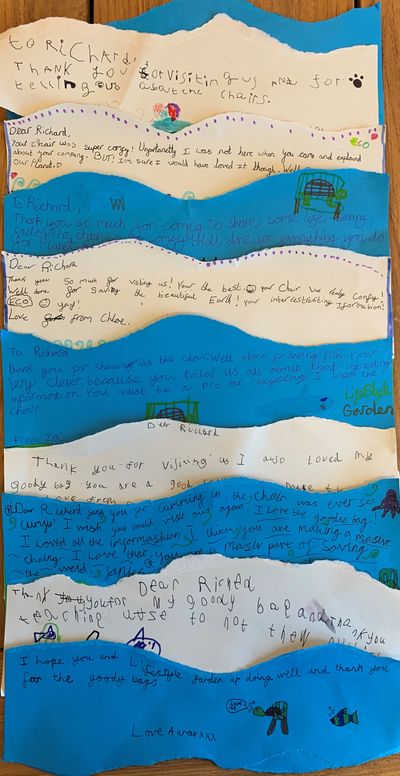 to RicHARD,
THANK YOU FOR VISITING US AND for
telling us about the CHAIRS.
Dear Richard,
Your chair was super comfy! Unfortunetly I was not here when you came and explaind
about your company. BUT! I'm sure I would have loved it though. Well
Our Planet.
ECO
To Richard,
Thank you so much for coming to share some
facts the chair was comfy. Well done for everything you do
for Planet
Dear Richard
Thank you So much for visiting us! Your the best. Your Chair was really Comfy!
Well done for Saving the beautiful Earth! your interrestresting Iformation!
ECO yay!
Love from Chloe.
To Richard
thank you for showing us the chair. Well done for saving fish. Your
very clever because you told us all about that intresting
information. You must be a pro at recycling I loved the
chair.
LifeStyle
Garden
From Zak
Dear Ruchard
Thank you for Visiting us I also Loved my
goody bag You are a good
Love from
Dear Richerd thank you for cumming in. the chair was ever so
I wish you could visit our again I Love the goodie bag
I Loved all the informashion I think you are making a
I Love that you
part of saving
the
Dear Riched
Thank you for my goody bag and thank you
teaching use to not
I hope you and Lifestyle garden ar doing well and thank you
for the goody bags.
Love Aarav xxx